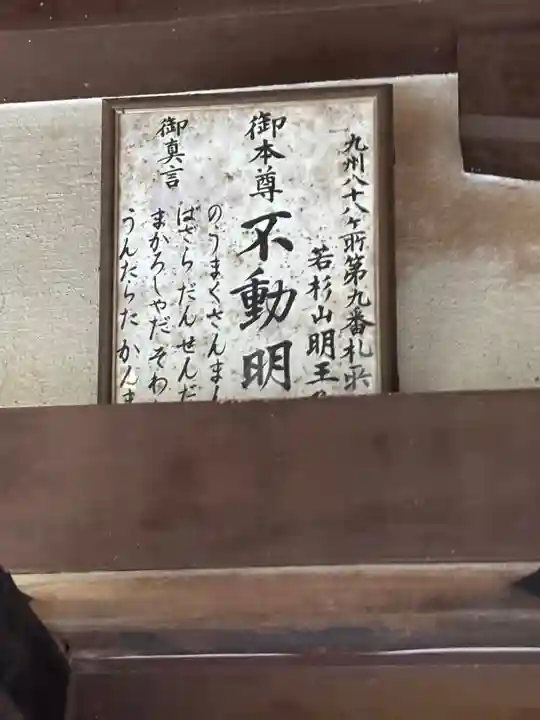 九州八十八ヶ所第九番札所
若杉山明王
御本尊不動明
御真言
のうまくさんまん
ばざらだんせんだ
まかろしゃだそわ
うんたらたかんま